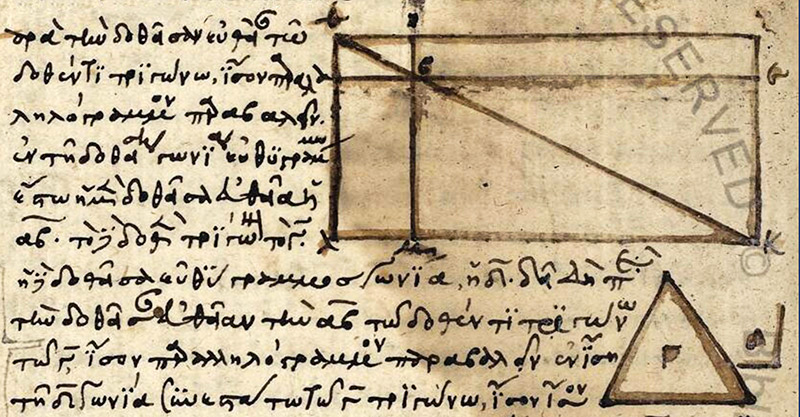 παρὰ τὴν δοθεῖσαν εὐθεῖαν τῷ
δοθέντι τριγώνω, ἴσον παραλ
ληλόγραμμον παραβαλεῖν
ἐν τῆ δοθείση γωνία εὐθυγράμμω
ἔστω ἡ μὲν δοθεῖσα εὐθεῖα ἡ
αβ. τὸ δὲ δοθὲν τρίγωνον τὸ γ.
ἡ δὲ δοθεῖσα εὐθύγραμμος γωνία, ἡ δ. δεῖ δὴ π
τὴν δοθεῖσαν εὐθεῖαν τὴν αβ τῶ δοθέντι τριγώνω
τῶ γ, ἴσον παραλληλόγραμμον παραβαλεῖν ἐν ἴση
τῆ δ γωνία συνεστάτω τῶ γ τριγώνω, ἴσον
ESERVED ©